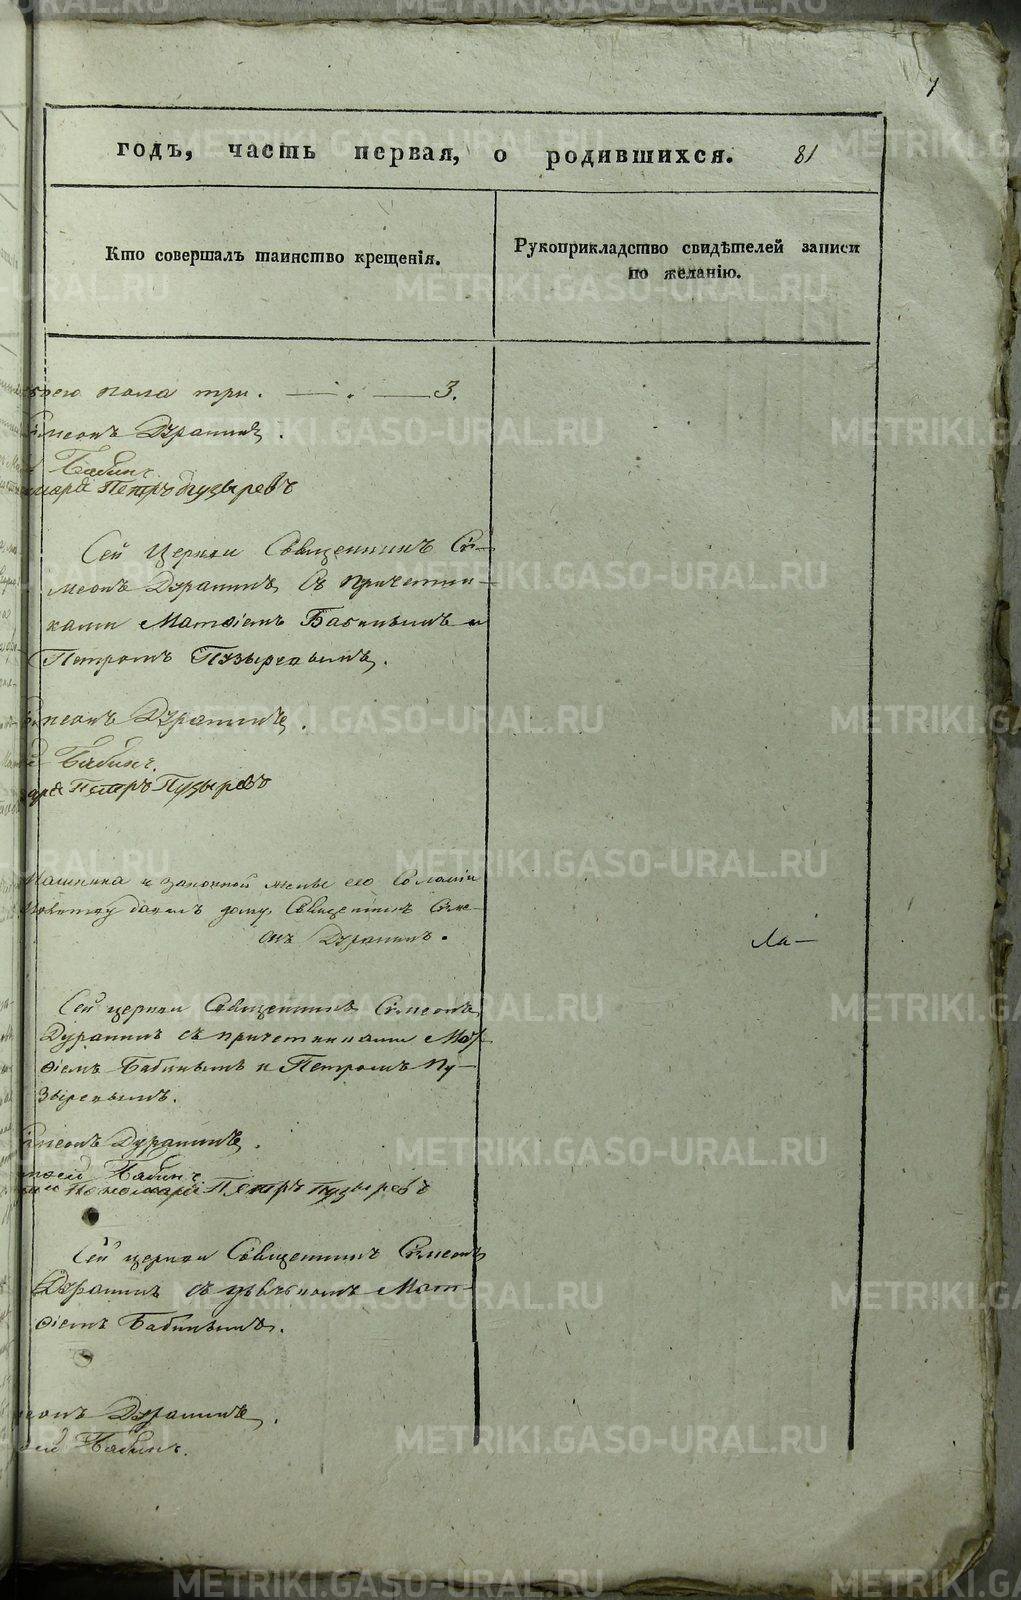 7
годъ, часть первая, о родившихся. 81
Кто совершалъ таинство крещенія.
Рукоприкладство свидѣтелей записи
по желанію.
пола три. 3.
Дурапинъ.
Бабинъ.
Петръ Пузыревъ
Сей Церкви Священникъ Си-
меонъ Дурапинъ съ причетни-
ками Матѳіемъ Бабинымъ и
Петромъ Пузыревымъ.
Дурапинъ.
Бабинъ.
Петръ Пузыревъ
и законной жены его
дому, Священникъ Симе-
онъ Дурапинъ.
Ла-
Сей церкви Священникъ Симеонъ
Дурапинъ съ причетниками Мат-
ѳіемъ Бабинымъ и Петромъ Пу-
зыревымъ.
Дурапинъ.
Бабинъ
Пономарь Петръ Пузыревъ
Сей церкви Священникъ Симеонъ
Дурапинъ съ Мат-
ѳіемъ Бабинымъ.
Дурапинъ.
Бабинъ.
METRIKI.GASO-URAL.RU